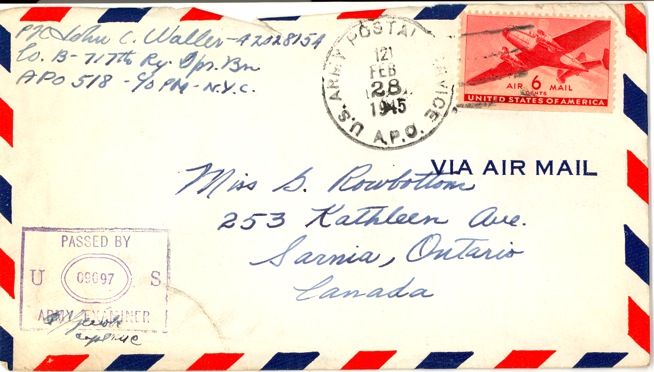 Pfc John C. Waller - A2028154
Co. B - 717th Ry. Opr. Bn
APO 518 - c/o PM - N.Y.C.
U.S. ARMY POSTAL SERVICE
A.P.O.
121
FEB
28
1945
AIR 6 MAIL
CENTS
UNITED STATES OF AMERICA
VIA AIR MAIL
Miss G. Rowbottom
253 Kathleen Ave.
Sarnia, Ontario
Canada
PASSED BY
U 09697 S
ARMY EXAMINER